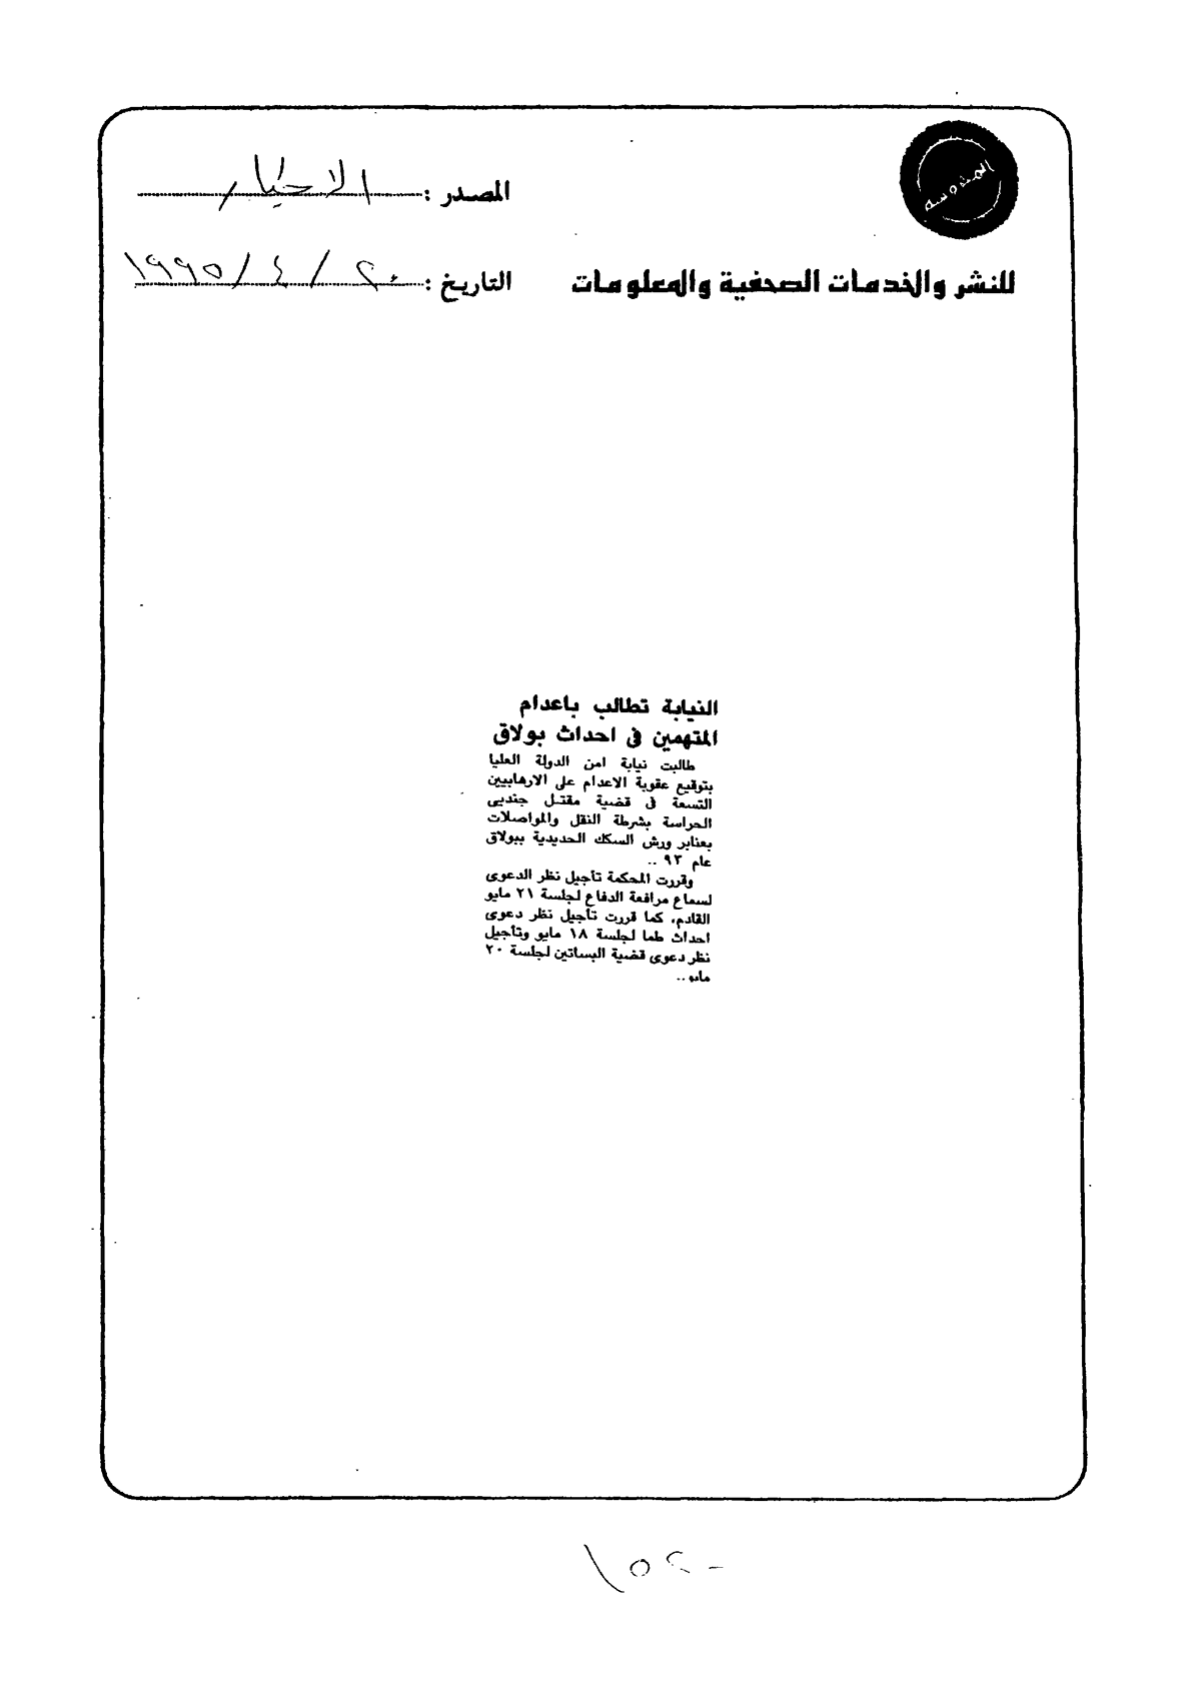 المصدر : الاخبار
للنشر والخدمات الصحفية والمعلومات
التاريخ : ٢٠ / ٤ / ١٩٩٥
النيابة تطالب باعدام
المتهمين فى احداث بولاق
طالبت نيابة امن الدولة العليا
بتوقيع عقوبة الاعدام على الارهابيين
التسعة فى قضية مقتل جنديى
الحراسة بشرطة النقل والمواصلات
بعنابر ورش السكك الحديدية ببولاق
عام ٩٣ ..
وقررت المحكمة تأجيل نظر الدعوى
لسماع مرافعة الدفاع لجلسة ٢١ مايو
القادم، كما قررت تأجيل نظر دعوى
احداث طما لجلسة ١٨ مايو وتأجيل
نظر دعوى قضية البساتين لجلسة ٢٠
مايو ..